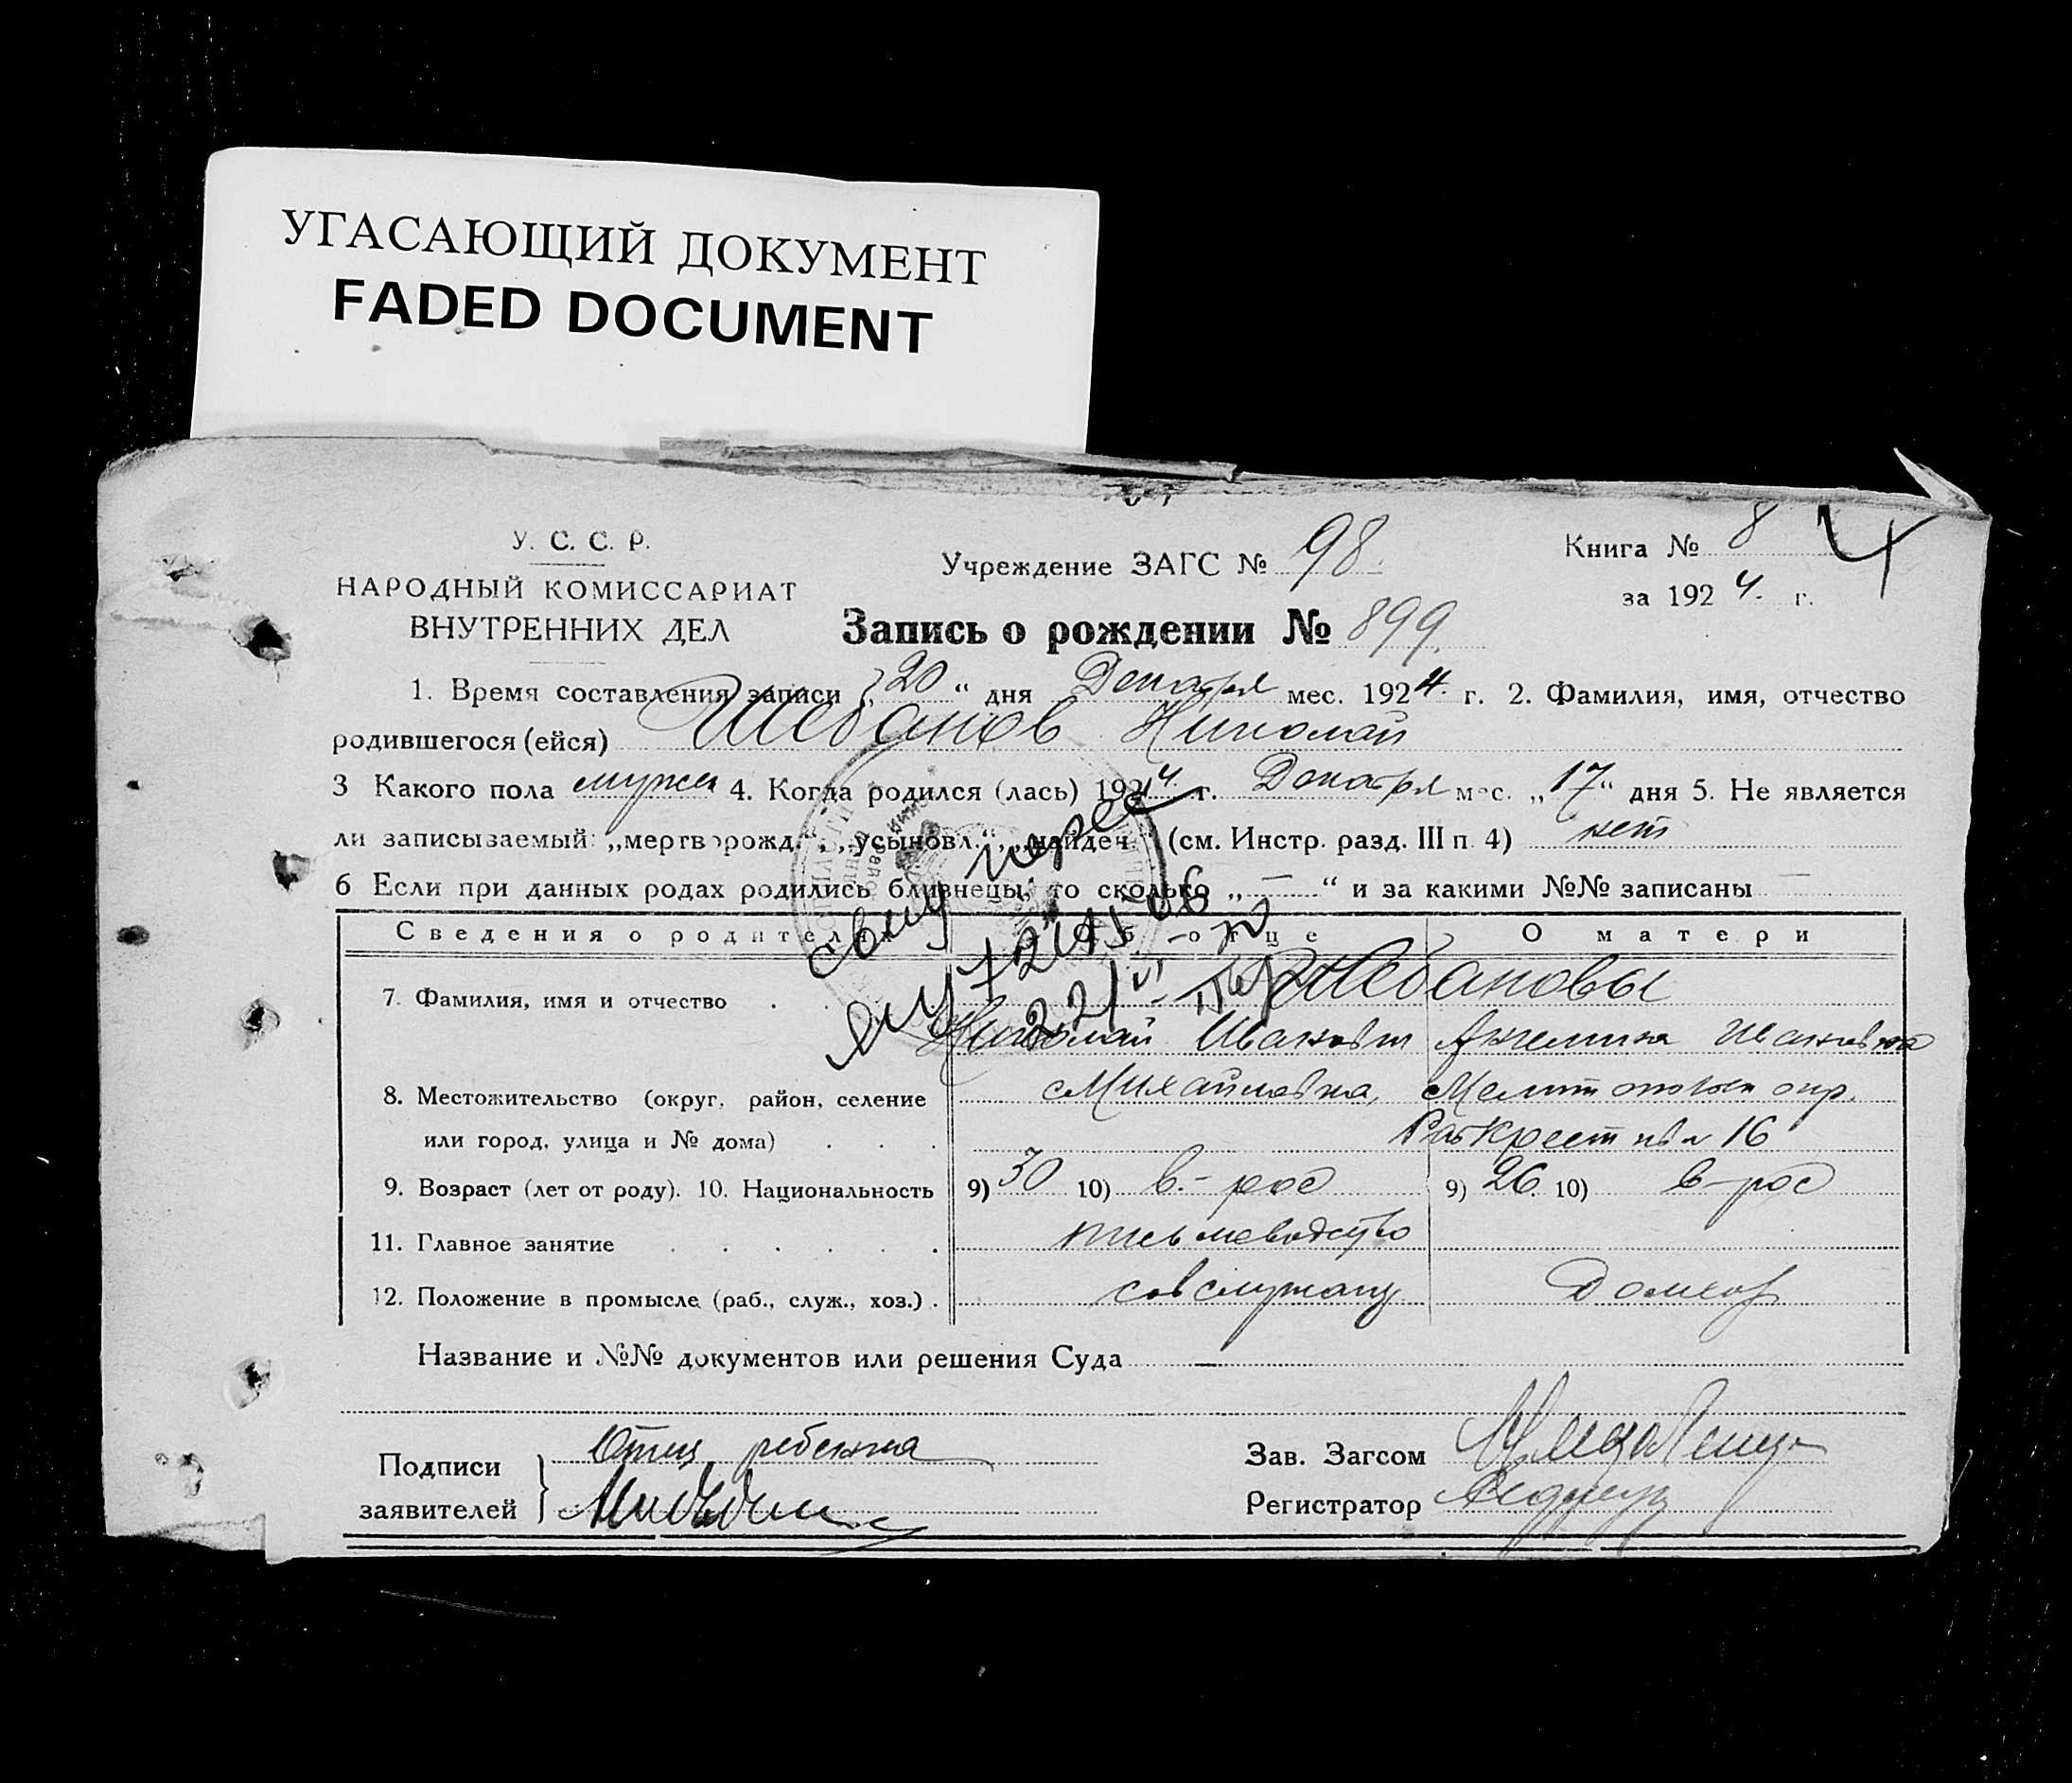 УГАСАЮЩИЙ ДОКУМЕНТ
FADED DOCUMENT
У. С. С. Р.
НАРОДНЫЙ КОМИССАРИАТ
ВНУТРЕННИХ ДЕЛ
Учреждение ЗАГС № 98.
Книга № 8
4
за 1924. г.
Запись о рождении № 899.
1. Время составления записи „20“ дня Декабря мес. 1924. г. 2. Фамилия, имя, отчество
родившегося (ейся) Шебанов Николай
3 Какого пола мужск 4. Когда родился (лась) 1924. г. Декабря мес. „17“ дня 5. Не является
ли записываемый: „мертворожд.“, „усыновл.“, „найден.“ (см. Инстр. разд. III п. 4) нет
6 Если при данных родах родились близнецы, то сколько „ — “ и за какими №№ записаны —
Сведения о родителях Об отце О матери
7. Фамилия, имя и отчество Шебановы
Николай Иванович Ангелина Ивановна
8. Местожительство (округ, район, селение Михайловка, Мелитопольск окр.
или город, улица и № дома) 16
9. Возраст (лет от роду). 10. Национальность 9) 30 10) в.-рос 9) 26. 10) в-рос
11. Главное занятие письмоводство
12. Положение в промысле (раб., служ., хоз.) совслужащ Домхоз
Название и №№ документов или решения Суда —
Подписи
заявителей
Отец ребенка
Зав. Загсом
Регистратор